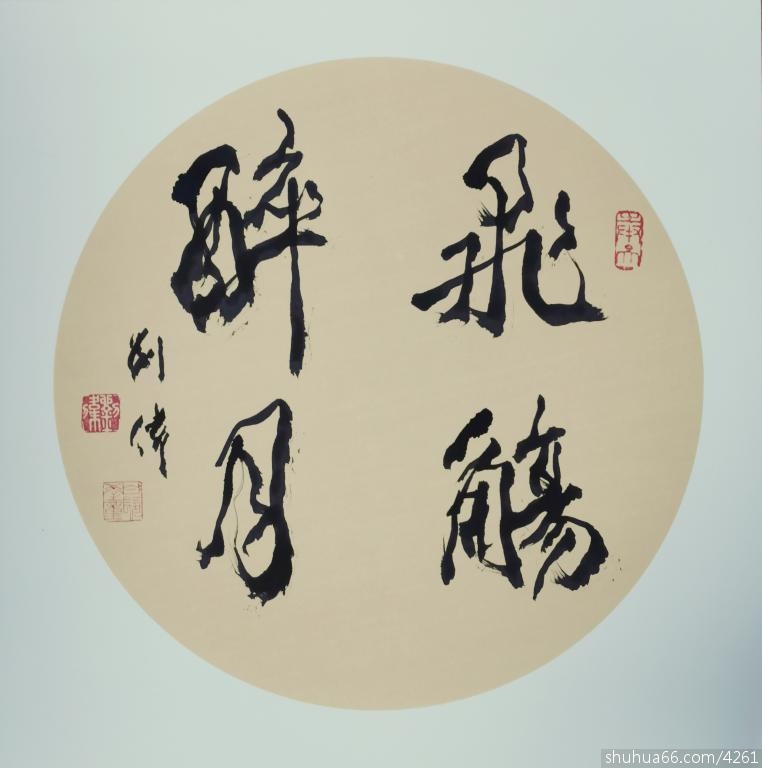 飛觴
醉月
劉偉
shuhua66.com/4261